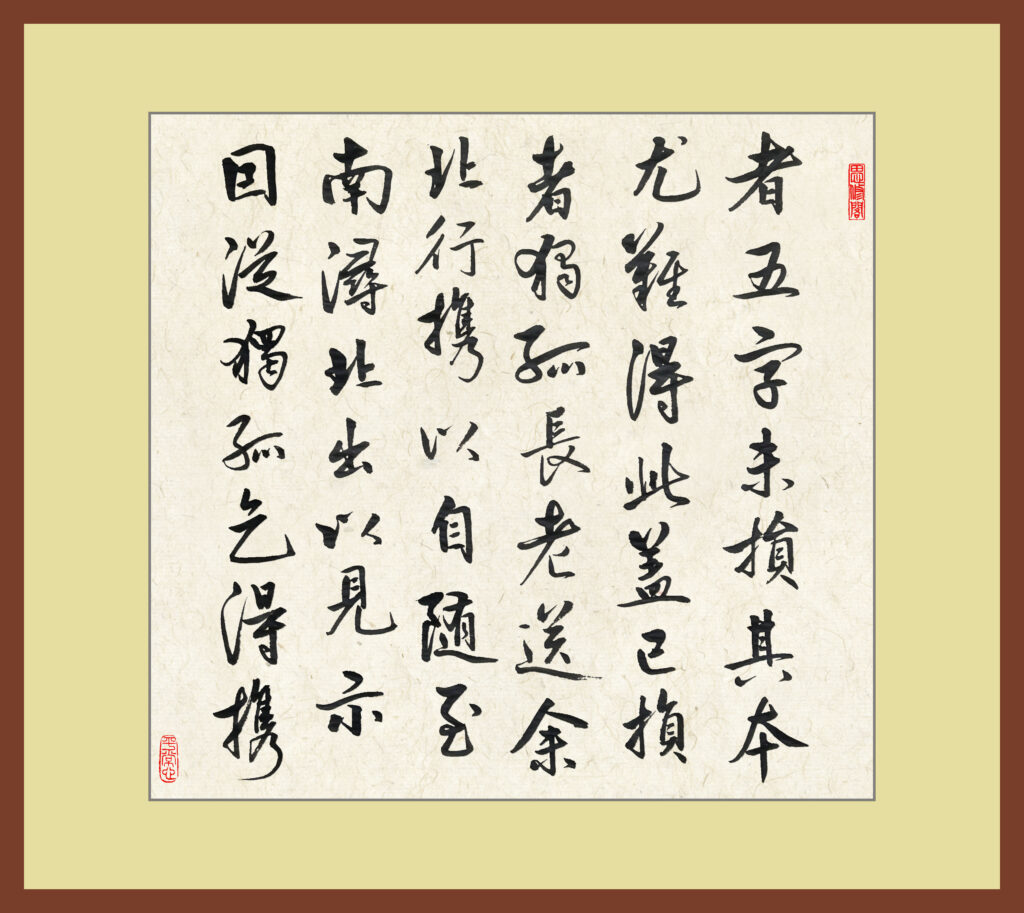 者五字未損其本
尤難得此蓋已損
者獨孤長老送余
北行携以自随至
南潯北出以見示
因從獨孤乞得携
平常心